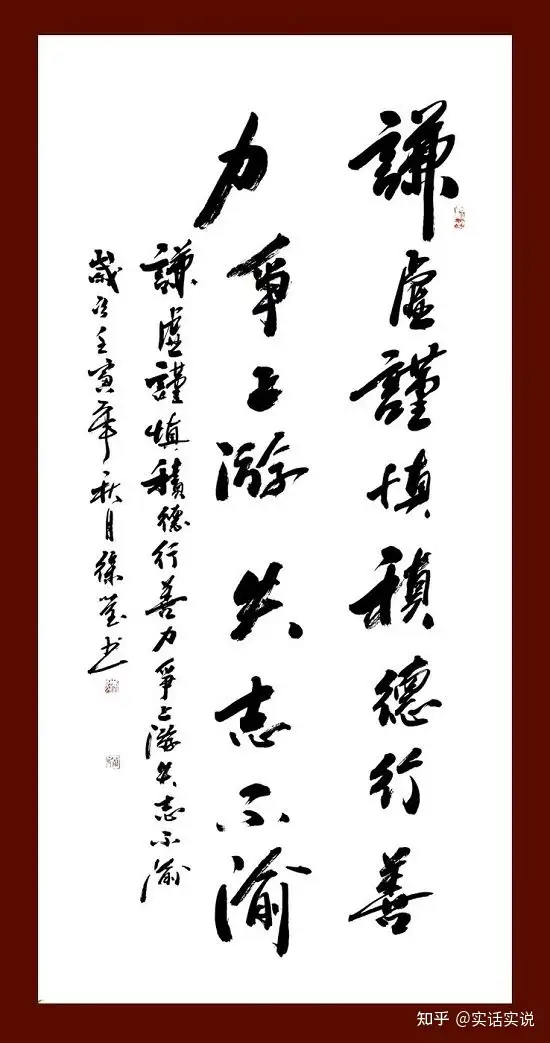 謙虛謹慎積德行善
力爭上游矢志不渝
謙虛謹慎積德行善力爭上游矢志不渝
歲次壬寅年秋月徐 书
知乎 @实话实说